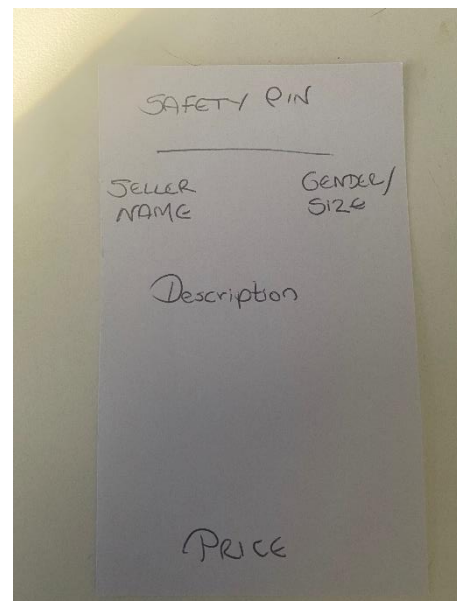 SAFETY PIN
SELLER NAME
GENDER/ SIZE
Description
PRICE